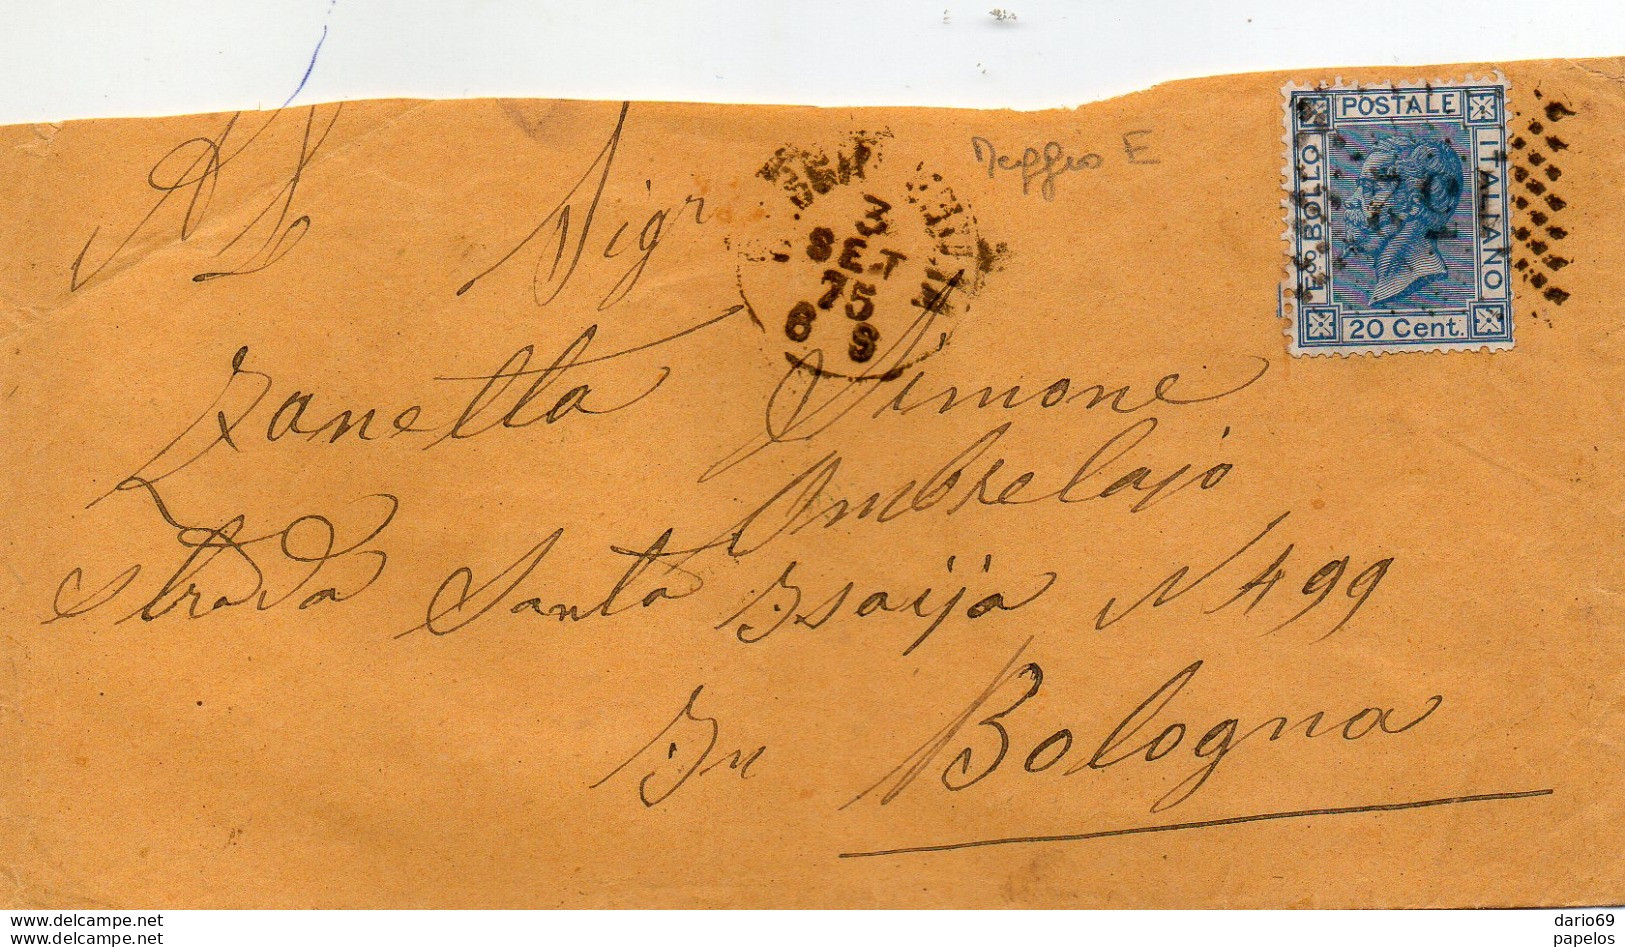 POSTALE
Bollo
ITALIANO
20 Cent.
3
SET
75
8 S
Al Sigr
Zanetta Simone
Ombrelajo
Strada Santa Isaija N 499
In Bologna
delcampe.net
dario69
delcampe.net
papelos